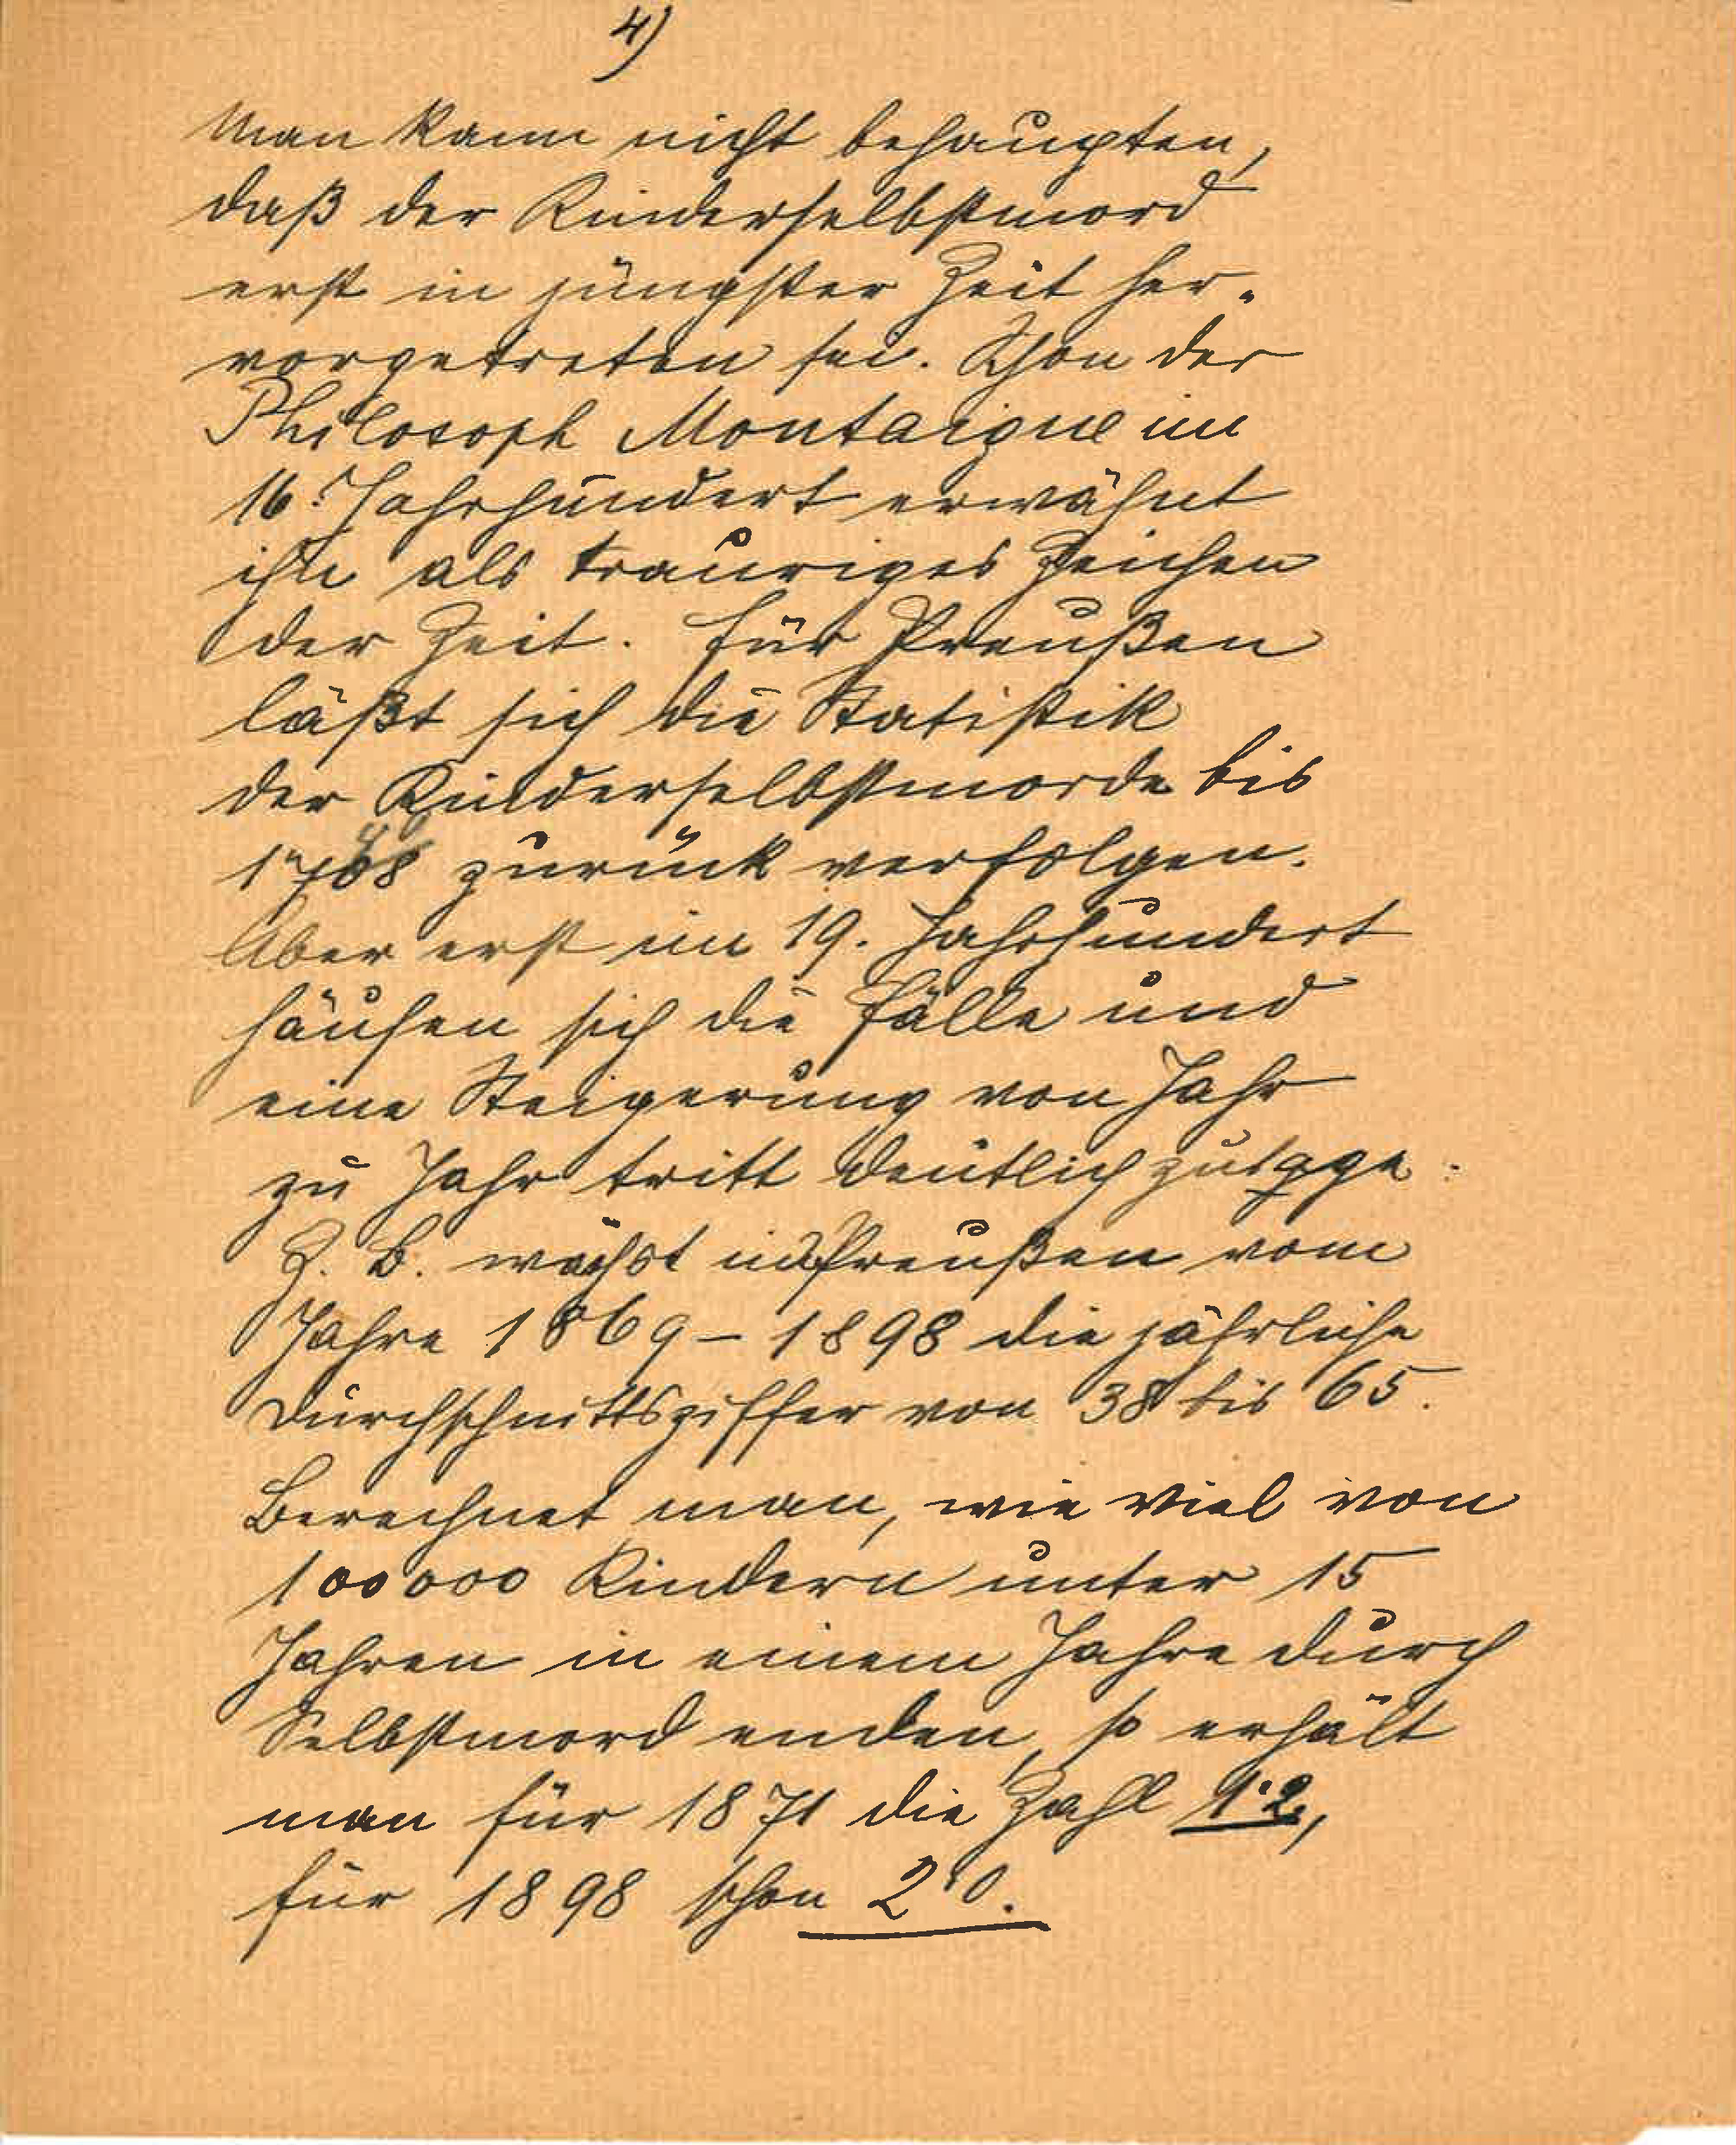 4)
Man kann nicht behaupten,
daß der Kinderselbstmord
erst in jüngster Zeit her-
vorgetreten sei. Schon der
Philosoph Montaigne im
16. Jahrhundert erwähnt
ihn als trauriges Zeichen
der Zeit. Für Preußen
läßt sich die Statistik
der Kinderselbstmorde bis
zurück verfolgen.
Aber erst im 19. Jahrhundert
häufen sich die Fälle und
eine Steigerung von Jahr
zu Jahr tritt deutlich zutage:
Z. B. wächst in Preußen vom
Jahre 1869 – 1898 die jährliche
Durchschnittsziffer von 38 bis 65.
Berechnet man, wie viel von
100000 Kindern unter 15
Jahren in einem Jahre durch
Selbstmord enden, so erhält
man für 1871 die Zahl 1·2,
für 1898 schon 2·0.